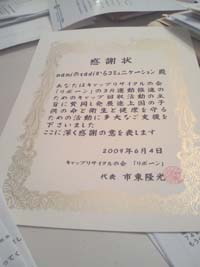 感謝状
naniのradiからコミュニケーション 殿
あなたはキャップリサイクルの会
「リボーン」の3R運動推進の
ためのキャップ回収活動の主
旨に賛同し発展途上国の子
供の命と衛生と健康を守る
ための活動に多大なご支援を
下さいました
ここに深く感謝の意を表します
2009年6月4日
キャップリサイクルの会 「リボーン」
代表 市東隆光